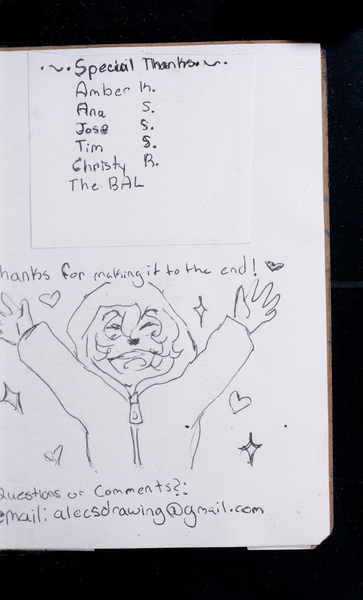 Special Thanks
Amber K.
Ana S.
Jose S.
Tim S.
Christy R.
The BAL
hanks for making it to the end!
Questions or Comments?:
email: alecsdrawing@gmail.com